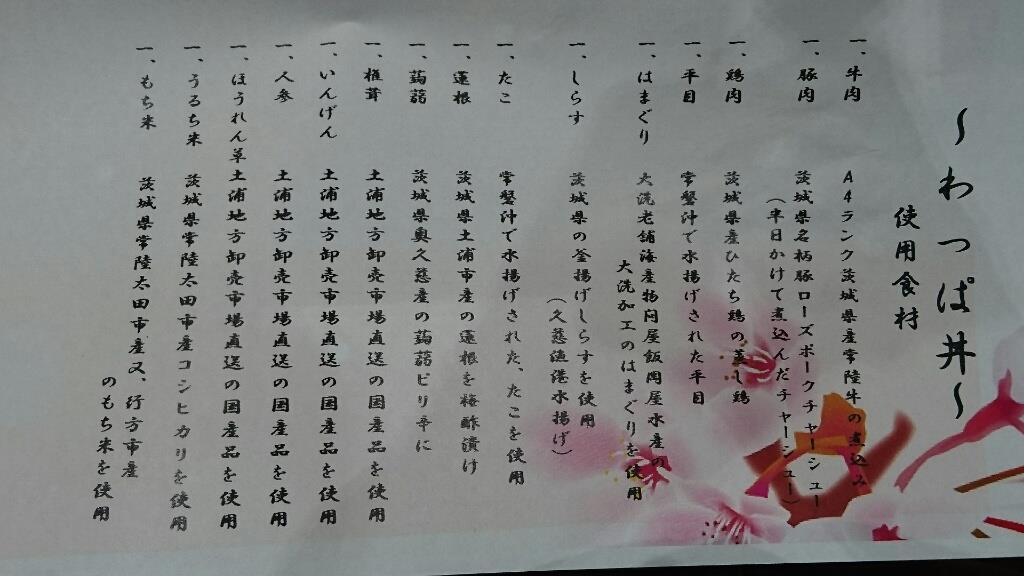 ～わっぱ丼～
使用食材
一、牛肉 A4ランク茨城県産常陸牛の煮込み
一、豚肉 茨城県名柄豚ローズポークチャーシュー
（半日かけて煮込んだチャーシュー）
一、鶏肉 茨城県産ひたち鶏の蒸し鶏
一、平目 常磐沖で水揚げされた平目
一、はまぐり 大洗老舗海産物問屋飯岡屋水産の
大洗加工のはまぐりを使用
一、しらす 茨城県の釜揚げしらすを使用
（久慈漁港水揚げ）
一、たこ 常磐沖で水揚げされた、たこを使用
一、蓮根 茨城県土浦市産の蓮根を梅酢漬け
一、蒟蒻 茨城県奥久慈産の蒟蒻ピリ辛に
一、椎茸 土浦地方卸売市場直送の国産品を使用
一、いんげん 土浦地方卸売市場直送の国産品を使用
一、人参 土浦地方卸売市場直送の国産品を使用
一、ほうれん草 土浦地方卸売市場直送の国産品を使用
一、うるち米 茨城県常陸太田市産コシヒカリを使用
一、もち米 茨城県常陸太田市産又、行方市産
のもち米を使用